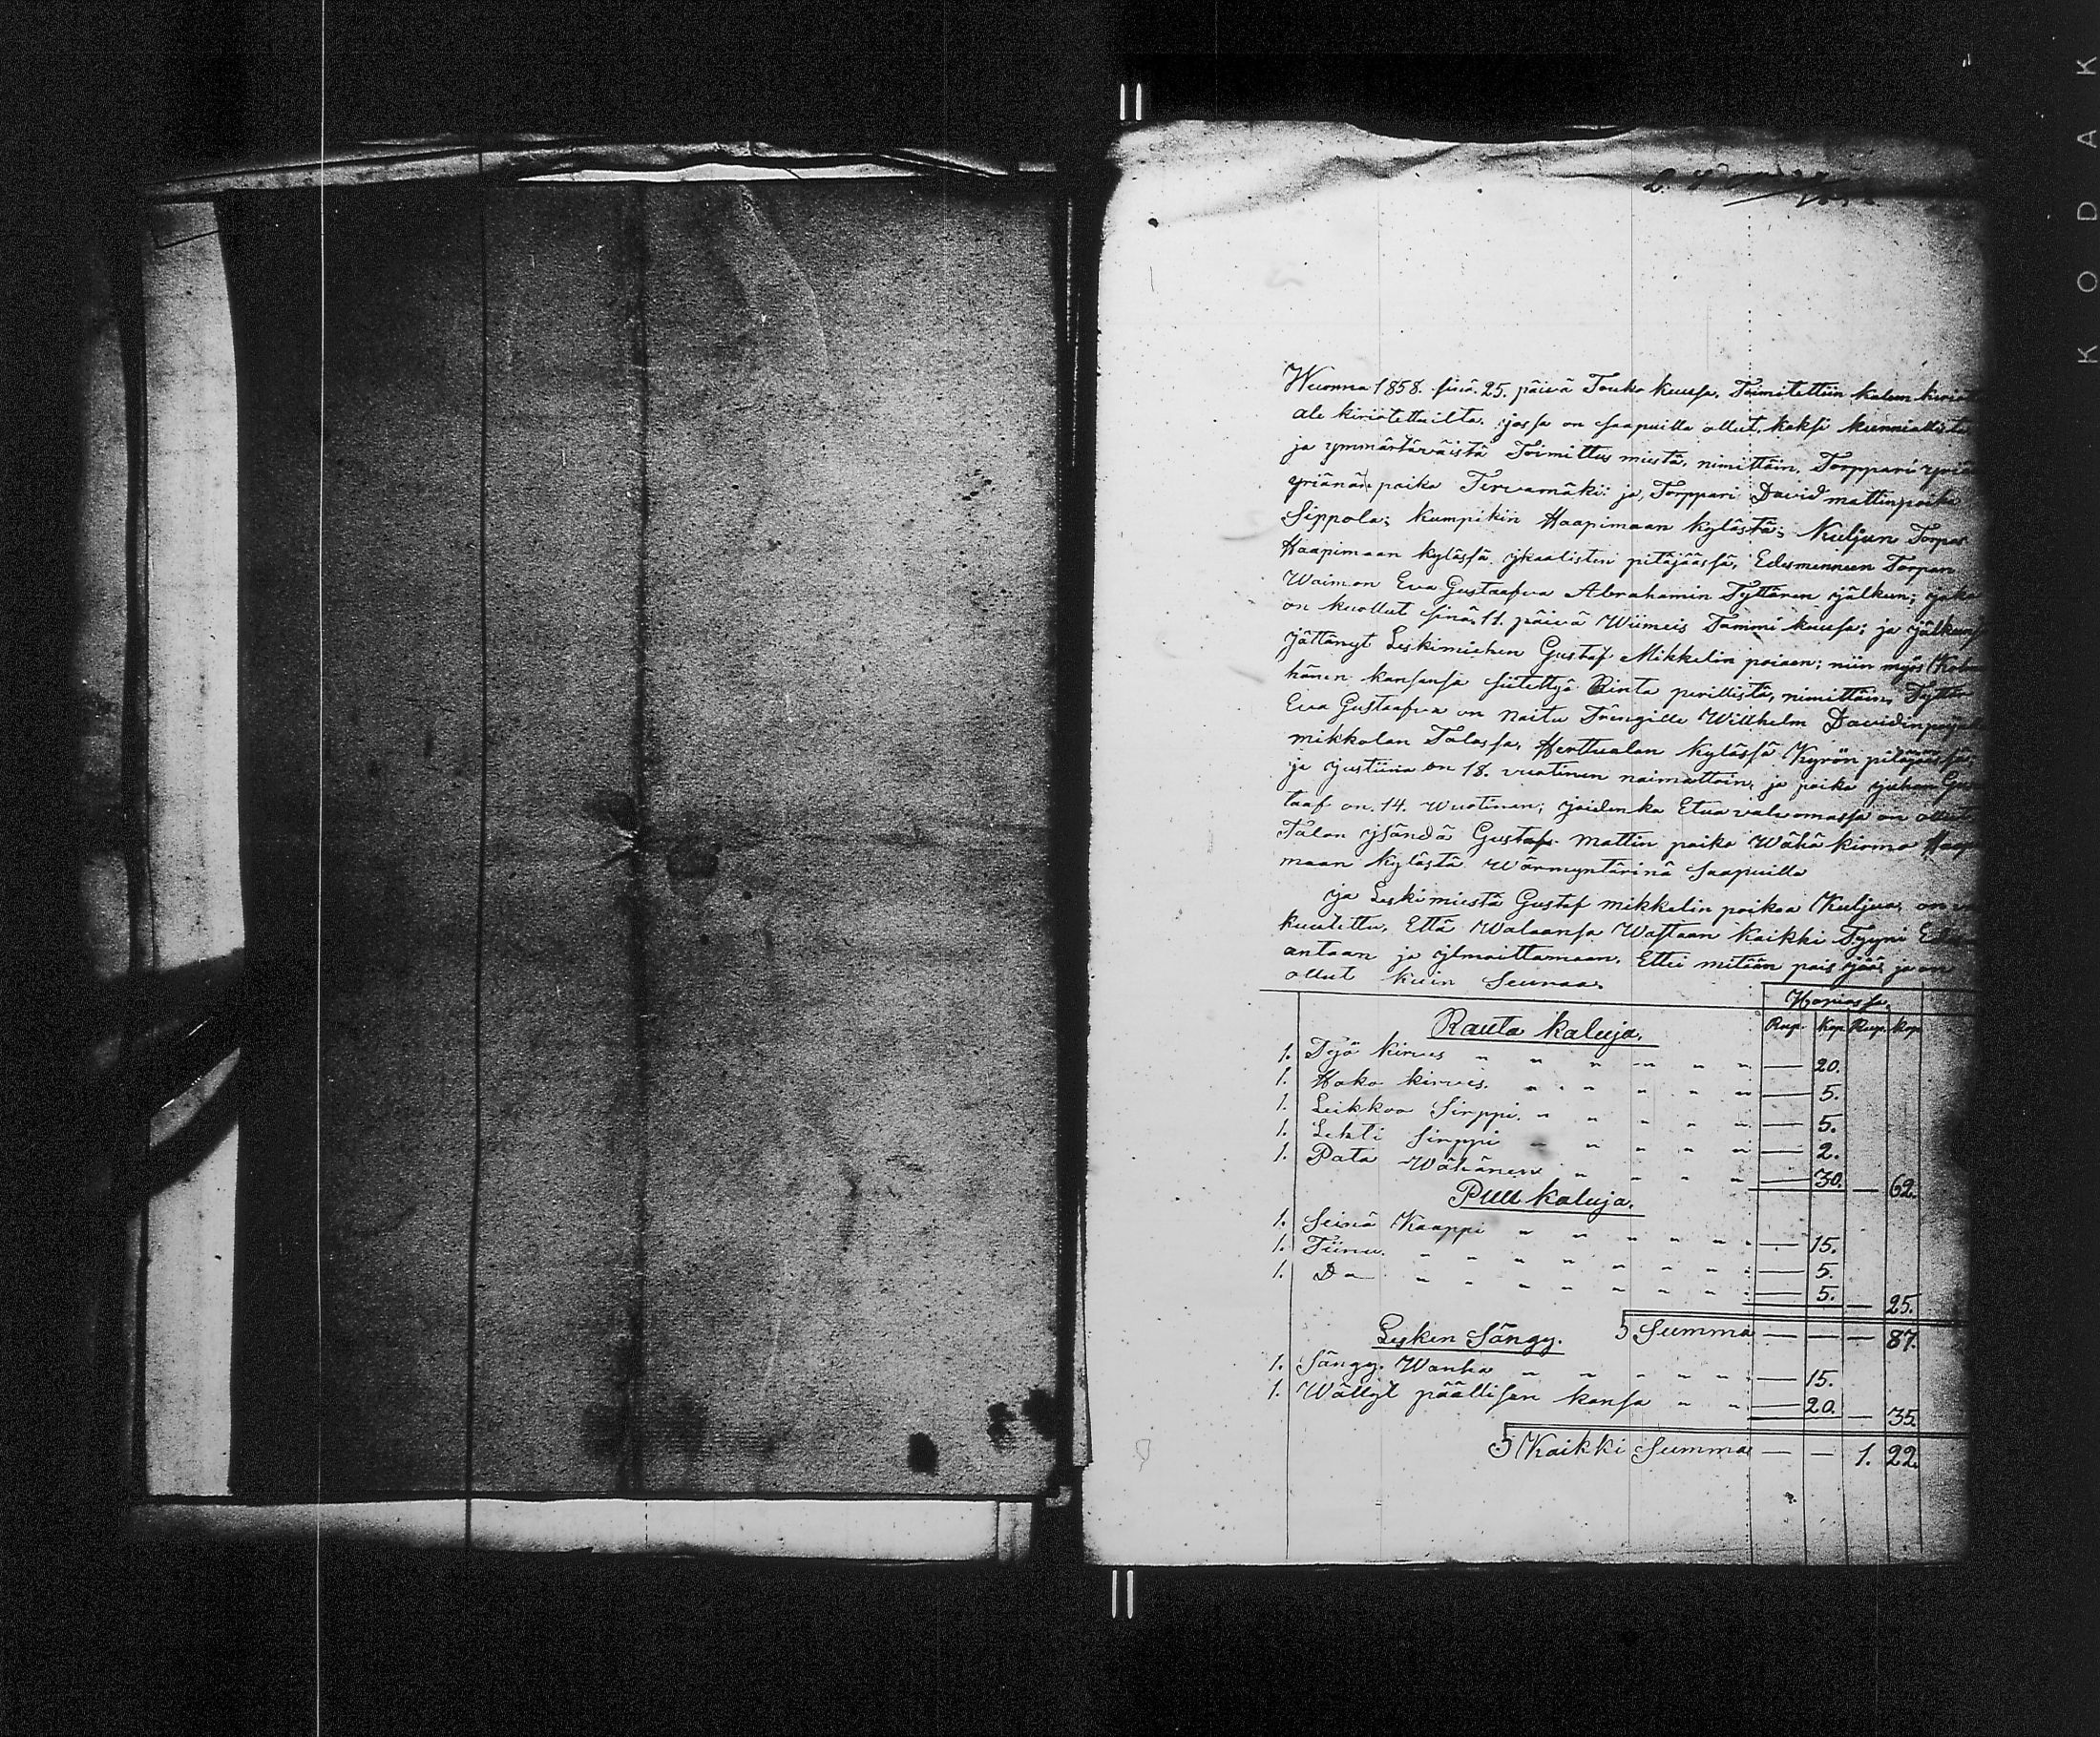 Wuonna 1858. sinä 25. päivä Touko kuussa, Toimitettiin kalun
ale kirioitettuilta, jossa on saapuilla ollut, kaksi kunniallista
ja ymmärtäväistä Toimittus miestä, nimittäin, Torppari
yriänän poika Tervamäki: ja, Torppari David mattinpoika
Sippola; kumpikin Haapimaan kylästä; Kuljun Torpas
Haapimaan kylässä, jkaalisten pitäjäässä, Edesmenneen Torpan
Waimon Eva Gustaafva Abrahamin Tyttären jälkeen; joka
on kuollut sinä 11. päivä Wiimeis Tammi kuussa; ja
jättänyt Leskimiehen Gustaf Mikkelin poian; niin myös
hänen kansansa siitettyä Rinta perillistä, nimittäin,
Eva Gustaafva on naitu Trengille Willhelm
mikkolan Talossa, Herttualan kylässä Kyrön pitäjäässä;
ja justiina on 18. vuotinen naimattoin, ja poika juhan
taaf on 14. wuotinen; joidenka Etua valvomassa on ollut
Talon jsändä Gustaf mattin poika Wähä kirmo
maan kylästä Wörmyntärinä saapuilla
ja Leskimiestä Gustaf mikkelin poikaa Kuljua, on
kuutettu, Että Walaansa Wastaan kaikki Tyyni
antaan ja jlmoittamaan, Ettei mitään pois jää, ja on
ollut kuin Seuraa.
Hopiassa,
Rup. Kop. Rup. Kop.
Rauta kaluja.
1. Työ kirves " " " " " " — 20.
1. Hako kirves. " " " " " " — 5.
1. Leikkoo Sirppi. " " " " " — 5.
1. Lehti Sirppi " " " " " — 2.
1. Pata Wähänen " " " " — 30. — 62.
Puu kaluja.
1. Seinä Kaappi " " " " " " — 15.
1. Tiinu. " " " " " " " — 5.
1. Do " " " " " " " — 5. — 25.
Summa — — — 87.
Lesken Sängy.
1. Sängy. Wanha " " " " " — 15.
1. Wällyt päällisen kansa " " — 20. — 35.
Kaikki Summa — — 1. 22.
KODAK